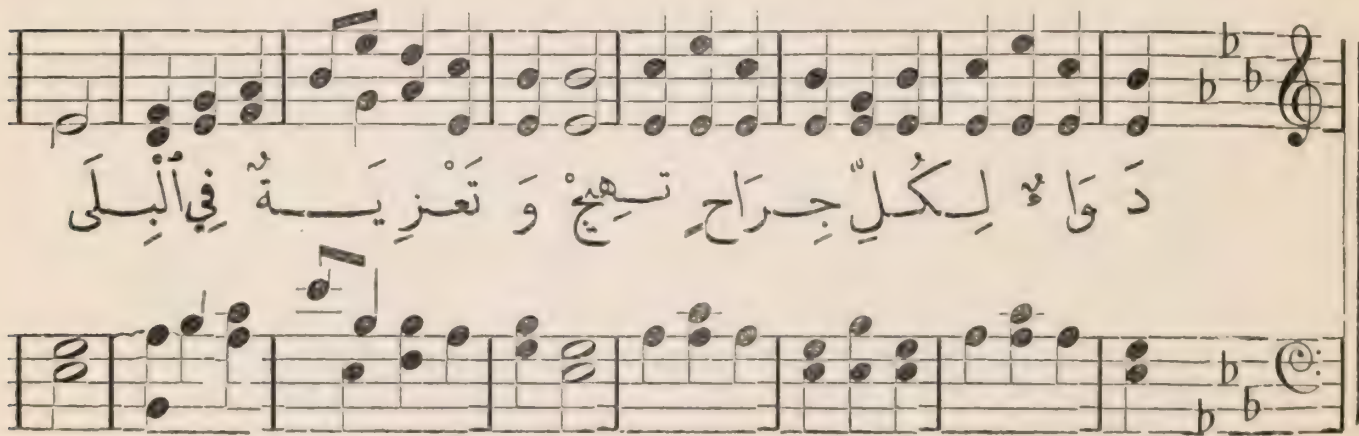 دَوَاءٌ لِكُلِّ جِرَاحٍ تَهِيجْ وَ تَعْزِيَةٌ فِي ٱلْبِلَى